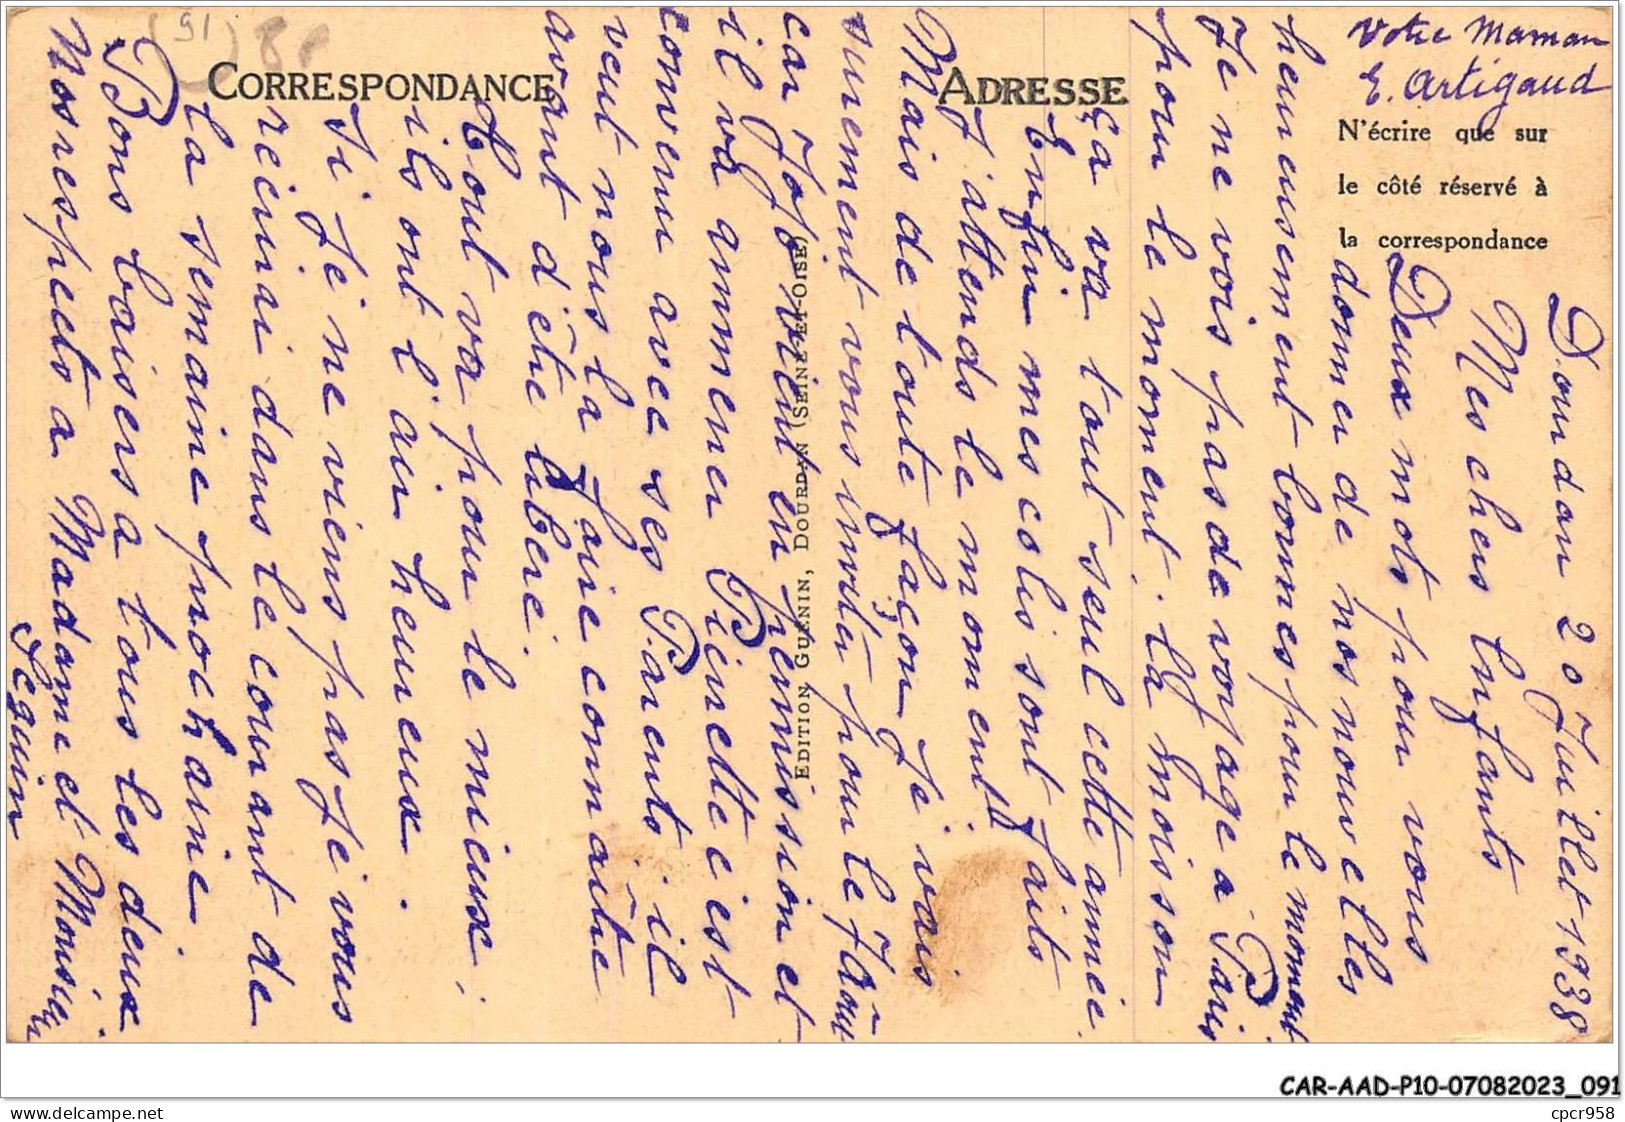 Dourdan 20 Juillet 1938
Mes chers Enfants
Deux mots pour vous
donner de nos nouvelles
heureusement bonnes pour le moment
Je ne vois pas de voyage a Paris
pour le moment. La moisson
ça va tout seul cette année.
Enfin mes colis sont faits
J'attends le moment
Mais de toute façon Je vais
surement vous inviter pour le 7 Août
car Jojo vient en permission et
il va ammener Pierrette c'est
convenu avec ses Parents il
veut nous la faire connaître
avant d'être libéré.
Tout va pour le mieux;
ils ont l'air heureux.
Si je ne viens pas Je vous
récrirai dans le courant de
la semaine prochaine
Bons baisers a tous les deux
Nos respects a Madame et Monsieur
Seguin
Votre Maman
E. Artigaud
CORRESPONDANCE
ADRESSE
N'écrire que sur
le côté réservé à
la correspondance
EDITION GUENIN, DOURDAN (SEINE-ET-OISE)
(91)
CAR-AAD-P10-07082023_091
www.delcampe.net
cpcr958